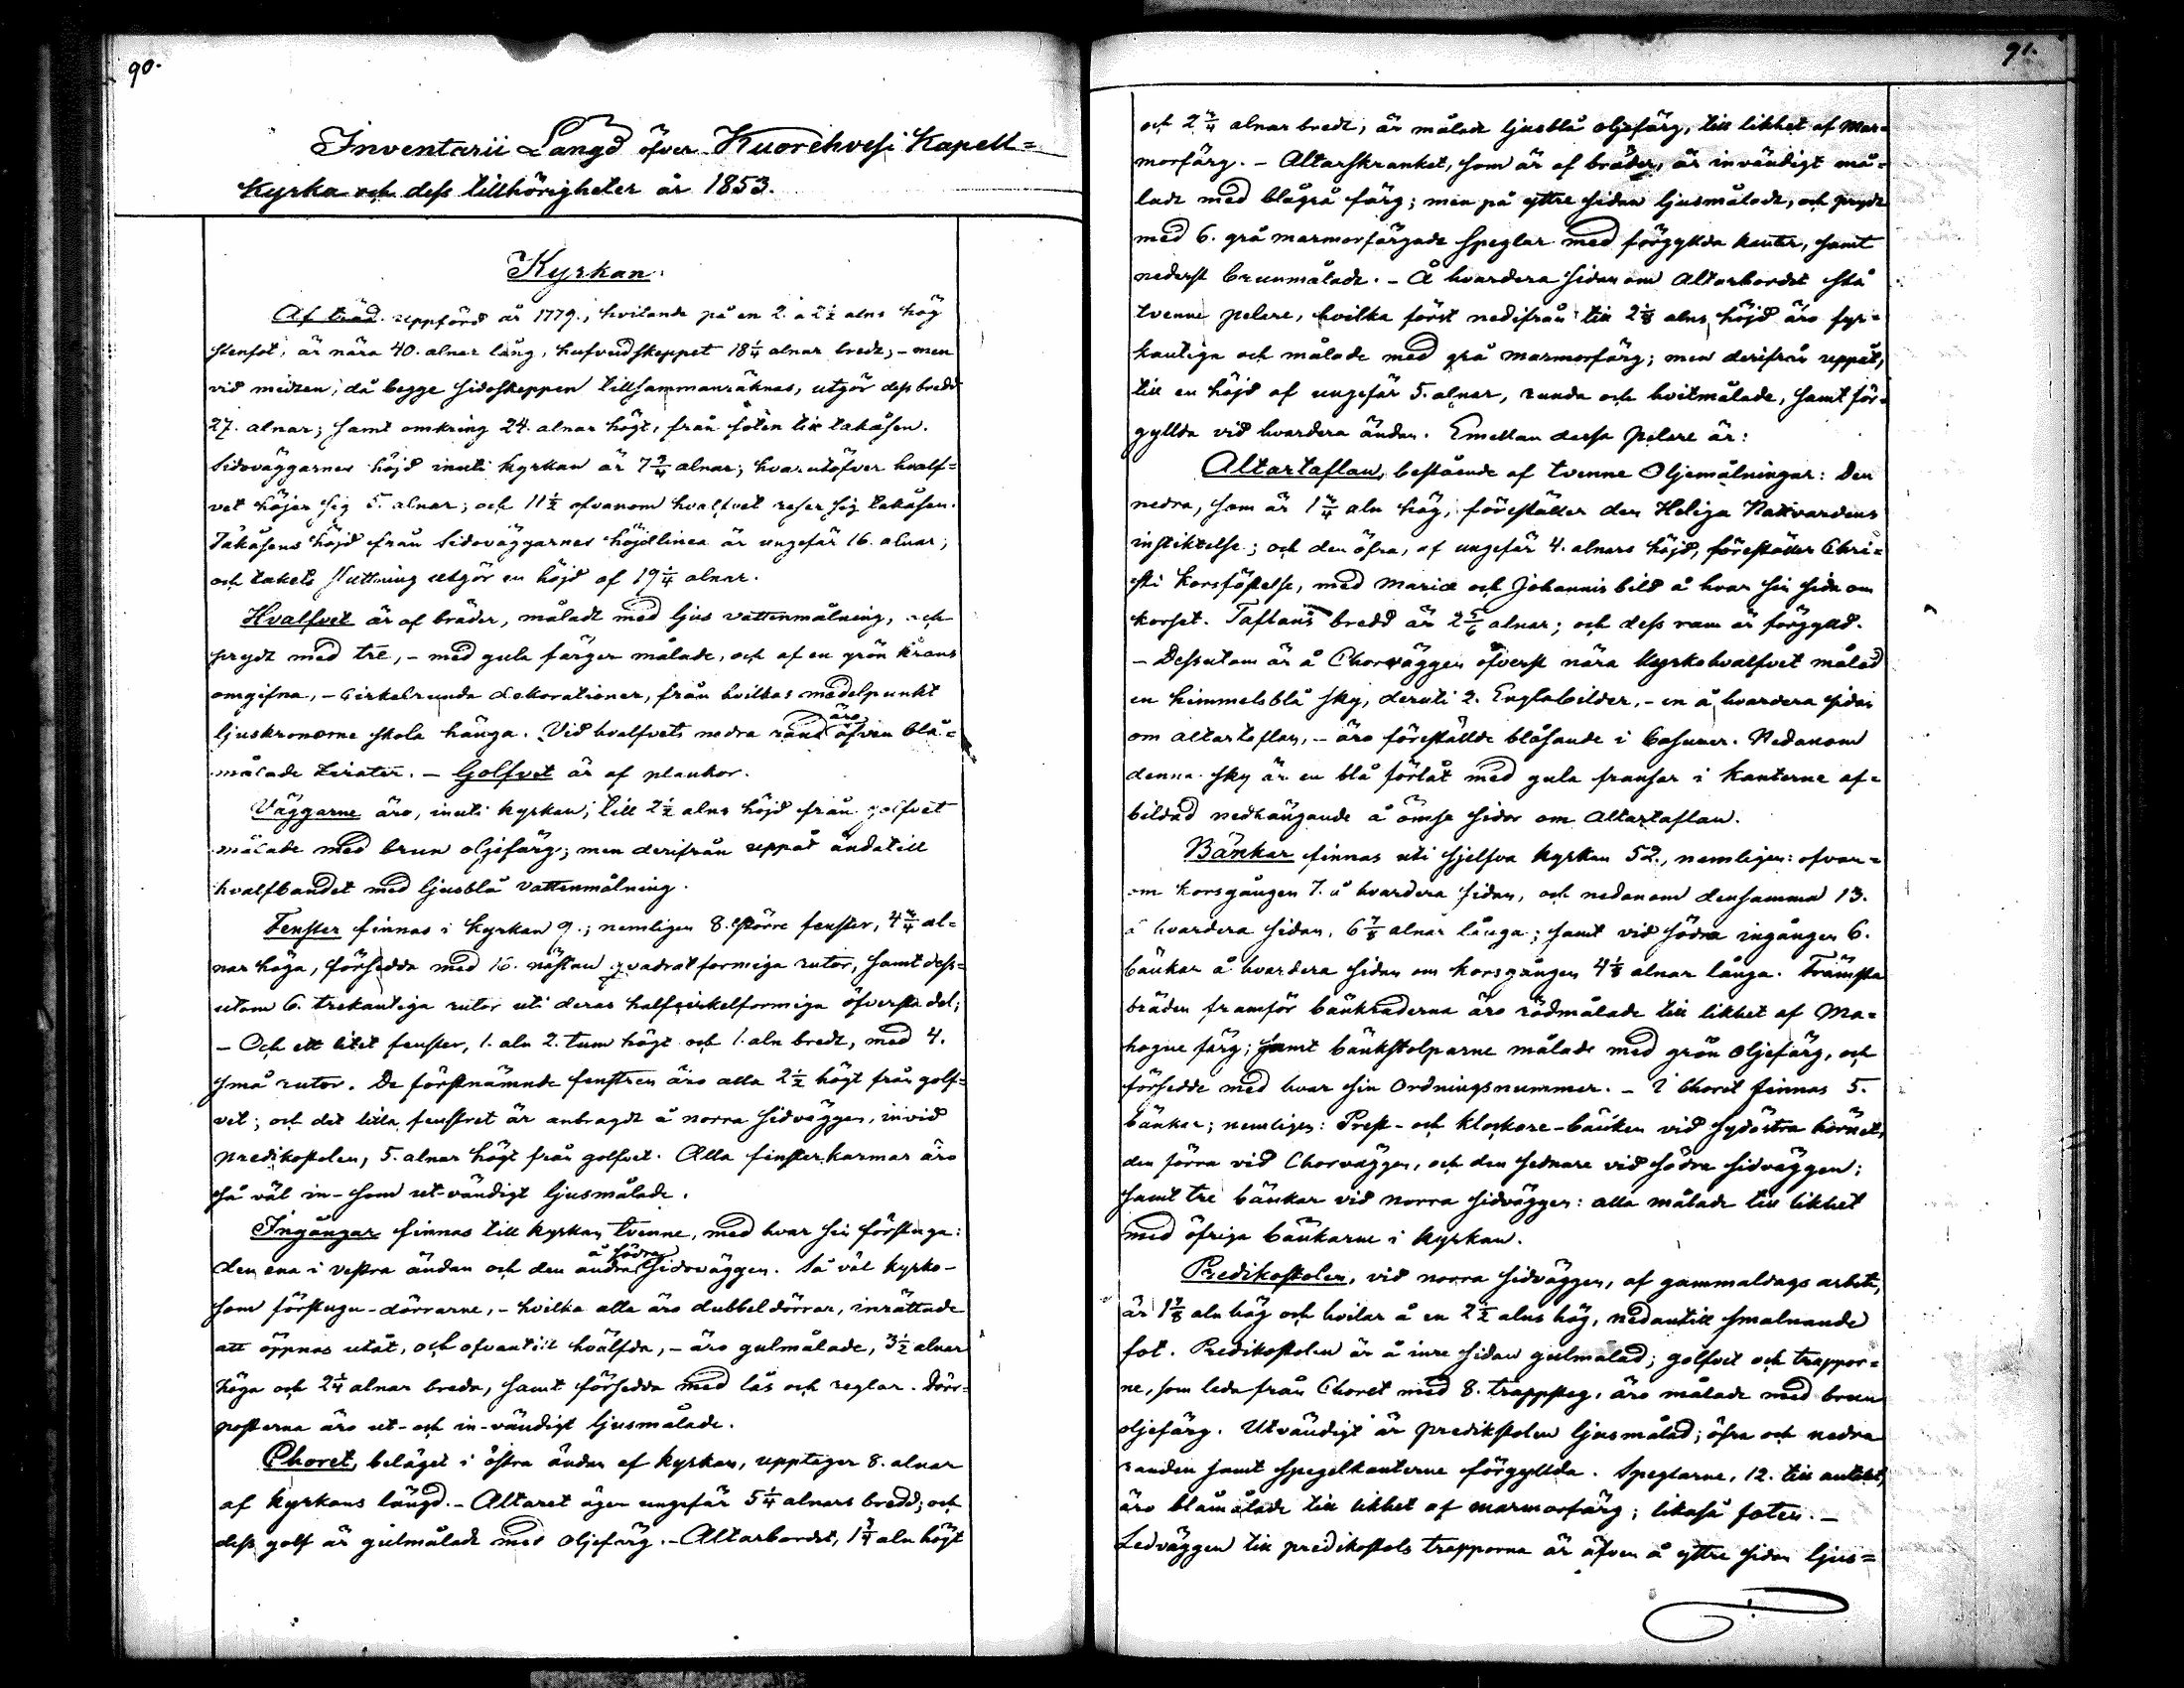 90.
Inventarii Längd öfver Kuorehvesi Kapell=
Kyrka och dess tillhörigheter år 1853.
Kyrkan.
Af träd uppförd år 1779., hvilande på en 2. à 2 1/2 alns hög
stenfot, är nära 40. alnar lång, hufvudskeppet 18 1/4 alnar bredt, - men
vid midten, då begge sidoskeppen tillsammanräknas, utgör dess bredd
27. alnar; samt omkring 24. alnar högt, från foten till takåsen.
Sidoväggarnes höjd inuti kyrkan är 7 3/4 alnar; hvarutöfver hvalf=
vet höjer sig 5. alnar; och 11 1/2 ofvanom hvalfvet reser sig takåsen.
Takåsens höjd från Sidoväggarnes höjdlinea är ungefär 16. alnar;
och takets sluttning utgör en höjd af 19 1/4 alnar.
Hvalfvet är af bräder, måladt med ljus vattenmålning, och
prydt med tre, - med gula färger målade, och af en grön krans
omgifna, - cirkelrunda dekorationer, från hvilkas medelpunkt
ljuskronorne skola hänga. Vid hvalfvets nedra rand äro äfven blå=
målade zirater. - Golfvet är af plankor.
Väggarne äro, inuti kyrkan, till 2 1/2 alns höjd från golfvet
målade med brun oljefärg; men derifrån uppåt ända till
hvalfbandet med ljusblå vattenmålning.
Fenster finnas i Kyrkan 9.; nemligen 8. större fenster, 4 3/4 al=
nar höga, försedda med 16. nästan qvadratformiga rutor, samt dess=
utom 6. trekantiga rutor uti deras halfcirkelformiga öfversta del;
- Och ett litet fenster, 1. aln 2. tum högt och 1. aln bredt, med 4.
små rutor. De förstnämnde fenstren äro alla 2 1/2 högt från golf=
vet; och det lilla fenstret är anbragdt å norra Sidväggen, invid
predikostolen, 5. alnar högt från golfvet. Alla fensterkarmar äro
så väl in- som ut-vändigt ljusmålade.
Ingångar finnas till kyrkan tvenne, med hvar sin förstuga:
den ena i vestra ändan och den andra å södra Sidoväggen. Så väl kyrko-
som förstugu-dörrarne, - hvilka alla äro dubbeldörrar, inrättade
att öppnas utåt, och ofvantill hvälfda, - äro gulmålade, 3 1/2 alnar
höga och 2 1/4 alnar breda, samt försedda med lås och reglar. Dörr-
posterna äro ut- och in-vändigt ljusmålade.
Choret, beläget i östra ändan af kyrkan, upptager 8. alnar
af kyrkans längd. - Altaret äger ungefär 5 1/4 alnars bredd; och
dess golf är gulmåladt med oljefärg. - Altarbordet, 1 3/4 aln högt
91.
och 2 3/4 alnar bredt, är måladt ljusblå oljefärg, till likhet af Mar=
morfärg. - Altarskranket, som är af bräder, är invändigt må=
ladt med blågrå färg; men på yttre sidan ljusmåladt, och prydt
med 6. grå marmorfärgade speglar med förgyllda kanter, samt
nederst brunmåladt. - Å hvardera sidan om Altarbordet stå
tvenne pelare, hvilka först nedifrån till 2 1/8 alns höjd äro fyr=
kantiga och målade med grå marmorfärg; men derifrån uppåt,
till en höjd af ungefär 5. alnar, runda och hvitmålade, samt för=
gyllda vid hvardera ändan. Emellan dessa pelare är:
Altartaflan, bestående af tvenne Oljemålningar: Den
nedra, som är 1 3/4 aln hög, föreställer den Heliga Nattvardens
instiktelse; och den öfra, af ungefär 4. alnars höjd, föreställer Chri=
sti Korsfästelse, med Mariæ och Johannis bild å hvar sin sida om
korset. Taflans bredd är 2 5/6 alnar; och dess ram är förgylld.
- Dessutom är å Chorväggen öfverst nära kyrkohvalfvet målad
en himmelsblå sky, deruti 2. Englabilder, - en å hvardera sidan
om altartaflan, - äro föreställde blåsande i basuner. Nedanom
denna sky är en blå förlåt med gula fransar i kanterne af=
bildad nedhängande å ömse sidor om Altartaflan.
Bänkar finnas uti sjelfva kyrkan 52., nemligen: ofvan=
om korsgången 7. å hvardera sidan, och nedanom densamma 13.
å hvardera sidan, 6 7/8 alnar långa; samt vid södra ingången 6.
bänkar å hvardera sidan om korsgången 4 1/8 alnar långa. Främsta
bräden framför bänkraderna äro rödmålade till likhet af Ma=
hogne färg; samt bänkstolparne målade med grön oljefärg, och
försedde med hvar sin Ordningsnummer. - I Choret finnas 5.
bänkar; nemligen: Prest- och klockare-bänken vid sydöstra hörnet,
den förra vid Chorväggen, och den sednare vid södra sidväggen;
samt tre bänkar vid norra sidväggen: alla målade till likhet
med öfriga bänkarne i kyrkan.
Predikostolen, vid norra sidväggen, af gammaldags arbete,
är 1 7/8 aln hög och hvilar å en 2 1/2 alns hög, nedantill smalnande
fot. Predikostolen är å inre sidan gulmålad; golfvet och trappor=
ne, som leda från Choret med 8. trappsteg, äro målade med brun
oljefärg. Utvändigt är predikstolen ljusmålad; öfra och nedra
randen samt spegelkanterne förgyllda. Speglarne, 12. till antalet,
äro blåmålade till likhet af marmorfärg; likaså foten. -
Ledväggen till predikostols trapporna är äfven å yttre sidan ljus=